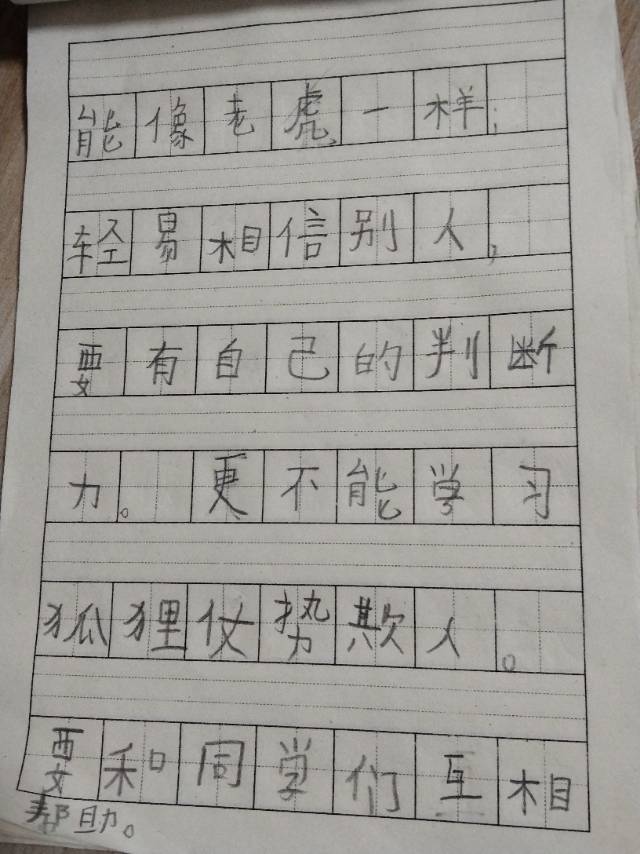 能像老虎一样;
轻易相信别人,
要有自己的判断
力。更不能学习
狐狸仗势欺人。
要和同学们互相
帮助。